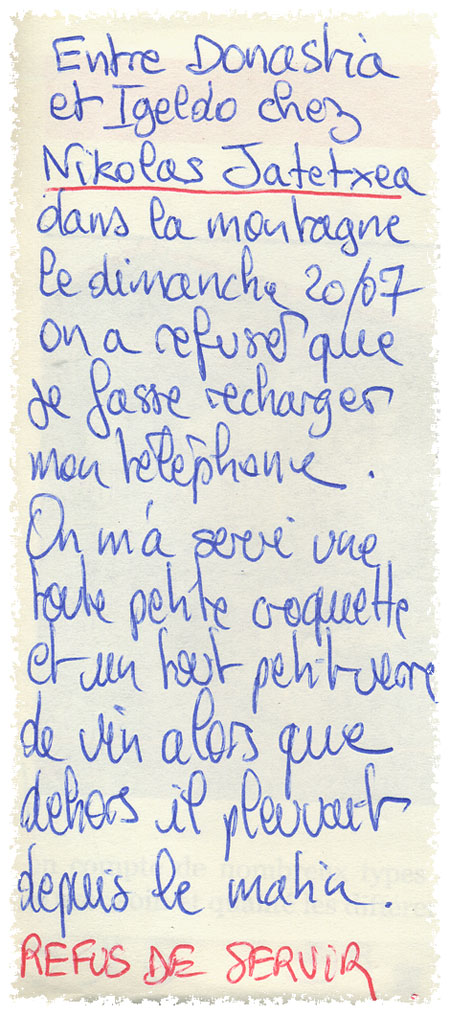 Entre Donastia
et Igeldo chez
Nikolas Jatetxea
dans la montagne
le dimanche 20/07
on a refuser que
je fasse recharger
mon téléphone.
On m'a servi une
toute petite croquette
et un tout petit verre
de vin alors que
dehors il pleuvait
depuis le matin.
REFUS DE SERVIR